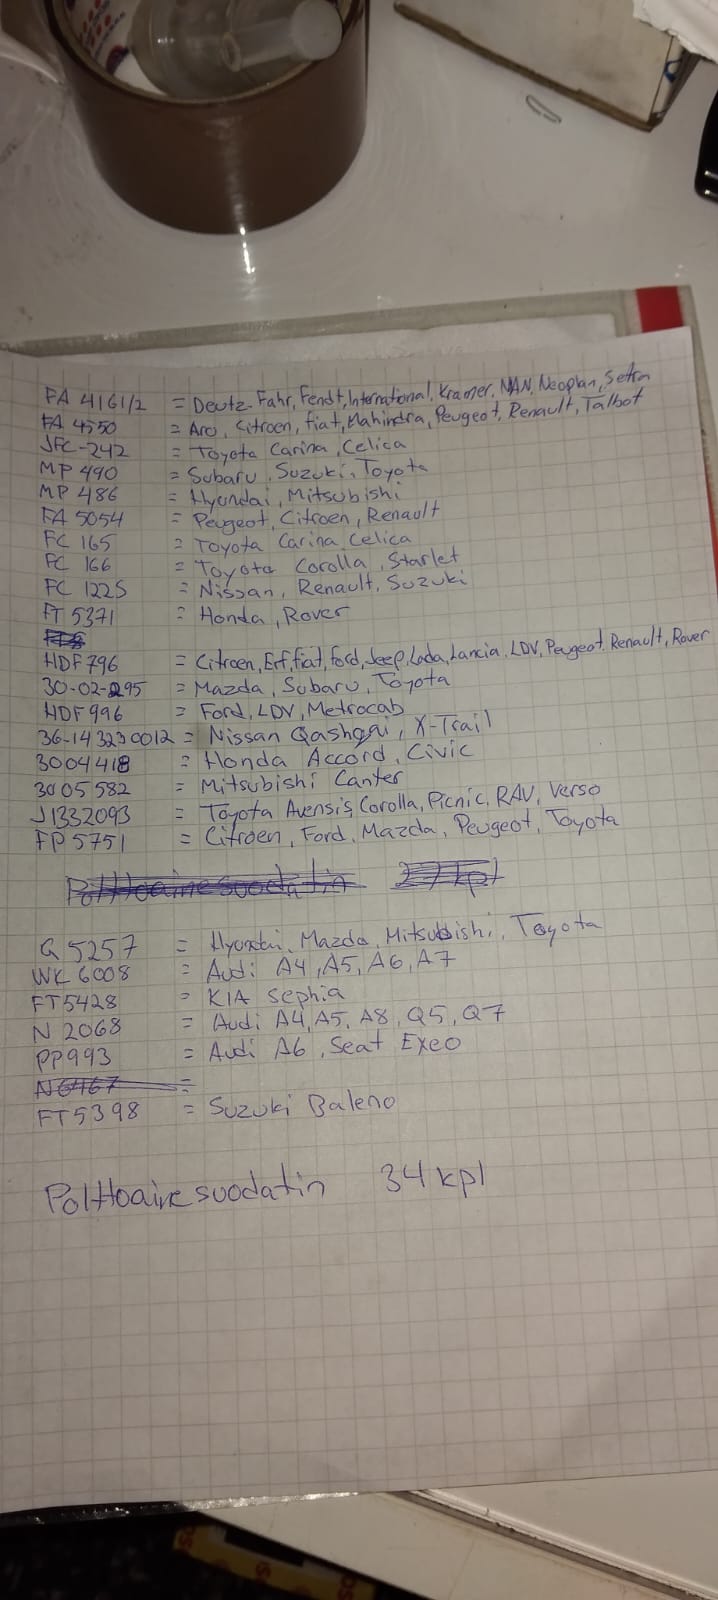 FA 4161/2 = Deutz-Fahr, Fendt, International, Kramer, MAN, Neoplan, Setra
FA 4550 = Aro, Citroen, Fiat, Mahindra, Peugeot, Renault, Talbot
JFC-242 = Toyota Carina, Celica
MP 490 = Subaru, Suzuki, Toyota
MP 486 = Hyundai, Mitsubishi
FA 5054 = Peugeot, Citroen, Renault
FC 165 = Toyota Carina Celica
FC 166 = Toyota Corolla, Starlet
FC 122S = Nissan, Renault, Suzuki
FT 5371 = Honda, Rover
HDF 796 = Citroen, Erf, fiat, ford, Jeep, Lada, Lancia, LDV, Peugeot, Renault, Rover
30-02-295 = Mazda, Subaru, Toyota
HDF 996 = Ford, LDV, Metrocab
36-143230012 = Nissan Qashqai, X-Trail
3004418 = Honda Accord, Civic
3005582 = Mitsubishi Canter
J1332093 = Toyota Avensis, Corolla, Picnic, RAV, Verso
FP 5751 = Citroen, Ford, Mazda, Peugeot, Toyota
Polttoainesuodatin 27 kpl
G 5257 = Hyundai, Mazda, Mitsubishi, Toyota
WK 6008 = Audi A4, A5, A6, A7
FT5428 = KIA Sephia
N 2068 = Audi A4, A5, A8, Q5, Q7
PP993 = Audi A6, Seat Exeo
N6467 =
FT5398 = Suzuki Baleno
Polttoainesuodatin 34 kpl